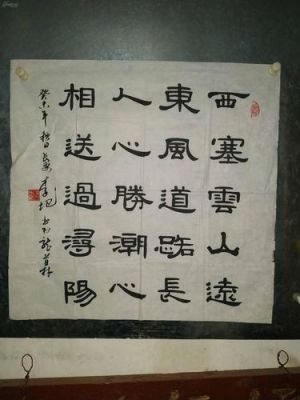 西塞雲山遠
東風道路長
人心勝潮心
相送過潯陽
癸未年